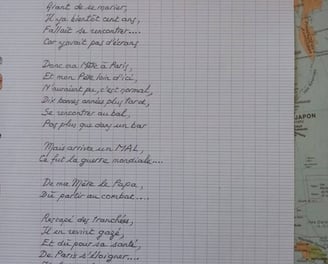 Avant de se marier,
Il y a bientôt cent ans,
Fallait se rencontrer....
Car y'avait pas d'écrans
Donc ma Mère à Paris,
Et mon Père loin d'ici,
N'auraient pu, c'est normal,
Dix bonnes années plus tard,
Se rencontrer au bal,
Pas plus que dans un bar
Mais arriva un MAL,
Ce fut la guerre mondiale....
De ma Mère le Papa,
Dû partir au combat....
Rescapé des tranchées,
Il en revint gazé,
Et dû pour sa santé,
De Paris s'éloigner....
JAPON